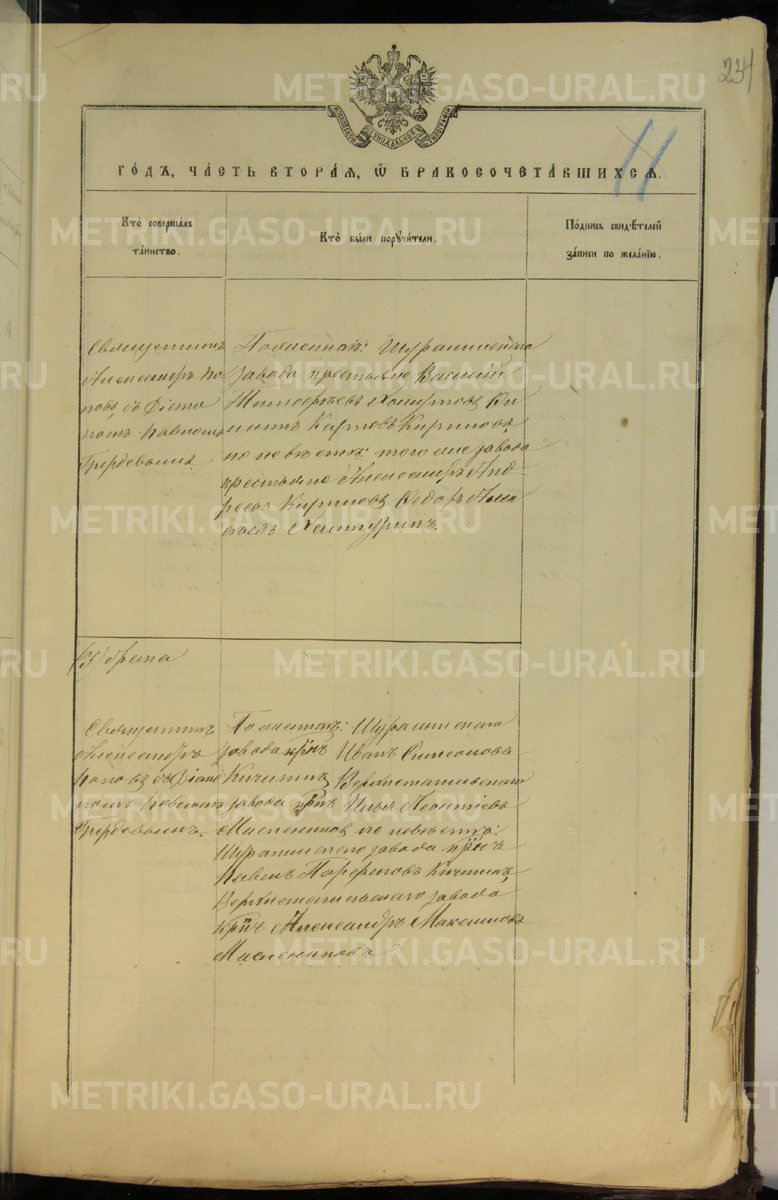 231
МОСКОВСКОЙ СѴНОДАЛЬНОЙ ТИПОГРАФІИ
ГОДЪ, ЧАСТЬ ВТОРАЯ, Ѡ БРАКОСОЧЕТАВШИХСЯ.
Кто совершалъ
таинство.
Кто были поручители.
Подпись свидѣтелей
записи по желанію.
Священникъ
Александръ По
повъ съ Діако
номъ Павломъ
По женихѣ: Шуралинскаго
завода крестьяне Василій
Кирилловъ
по невѣстѣ: того же завода
крестьяне Александръ Анд
реевъ Кирилловъ Ѳедоръ Алек
сѣевъ Халтуринъ.
брака
Священникъ
Александръ
Поповъ съ Діако
номъ Павломъ
По женихѣ: Шуралинскаго
завода крнъ Иванъ Симеоновъ
Кичигинъ Верхнетагильскаго
завода крнъ Илья Леонтіевъ
Масленниковъ по невѣстѣ:
Шуралинскаго завода крнъ
Павелъ Кичигинъ,
Верхнетагильскаго завода
крнъ Александръ Максимовъ
Маслениковъ
METRIKI.GASO-URAL.RU